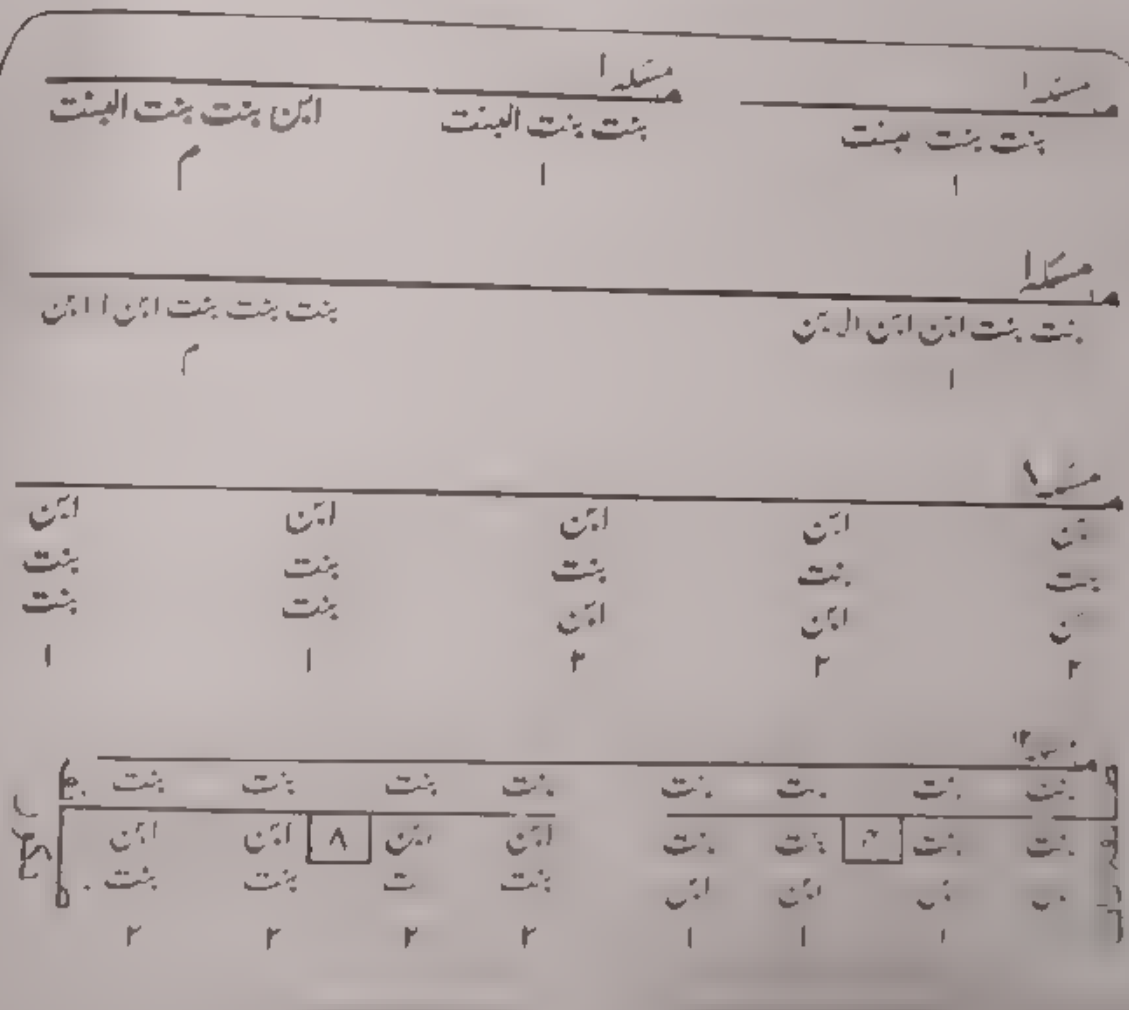 مسئلہ ۱ مسئلہ ۱
بنت بنت بنت بنت بنت البنت ابن بنت بنت البنت
۱ ۱ م
مسئلہ ۱
بنت بنت ابن ابن الابن بنت بنت بنت ابن ا ابن
۱ م
ابن ابن ابن ابن
بنت بنت بنت بنت بنت
ابن ابن بنت بنت
۲ ۲ ۲ ۱ ۱
۱۲
بنت بنت بنت بنت بنت بنت بنت بنت
بنت بنت بنت بنت ابن ابن ۸ ابن ابن
ابن ابن بنت بنت بنت
۱ ۱ ۱ ۲ ۲ ۲ ۲